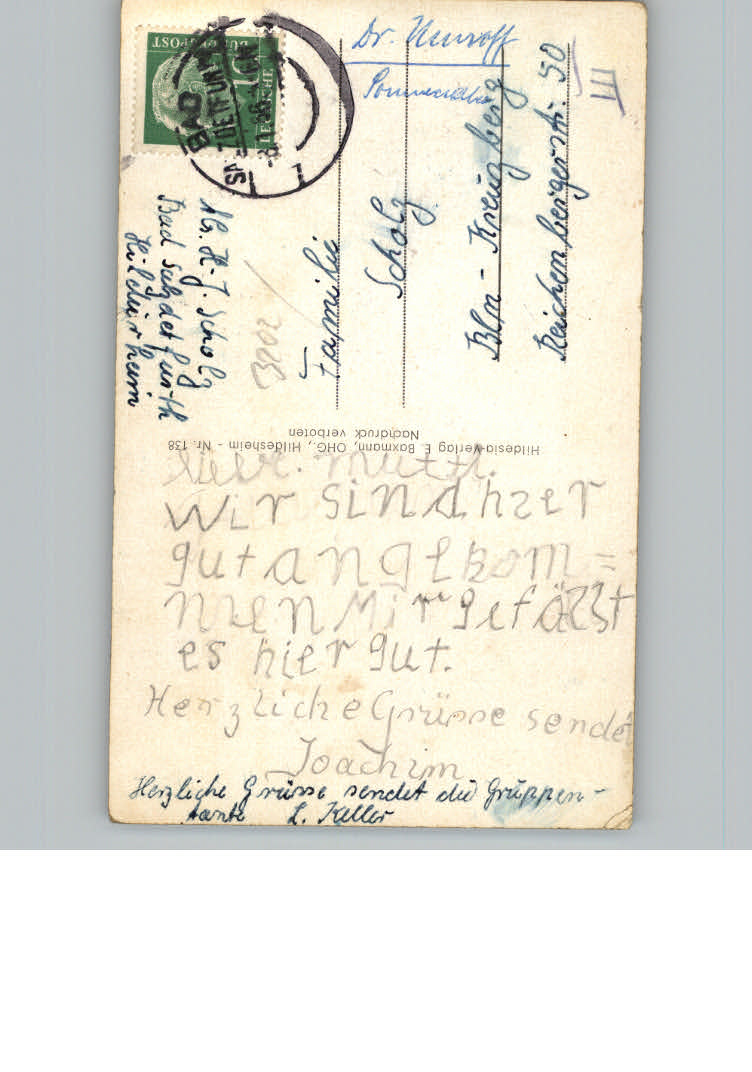 Dr. Neuroff
DEUTSCHE
BUNDESPOST
10
BAD
SALZDETFURTH
1
III
Familie
Scholz
Bln - Kreuzberg
Reichenbergerstr. 50
Ab. H-J. Scholz
Bad Salzdetfurth
Hildesheim
3202
Hildesia-Verlag E. Baxmann, OHG., Hildesheim - Nr. 138
Nachdruck verboten
Liebe Mutti.
Wir sind hier
gut angekom=
men Mir gefällt
es hier gut.
Herzliche Grüsse sendet
Joachim
Herzliche Grüsse sendet die Gruppen-
tante L. Keller